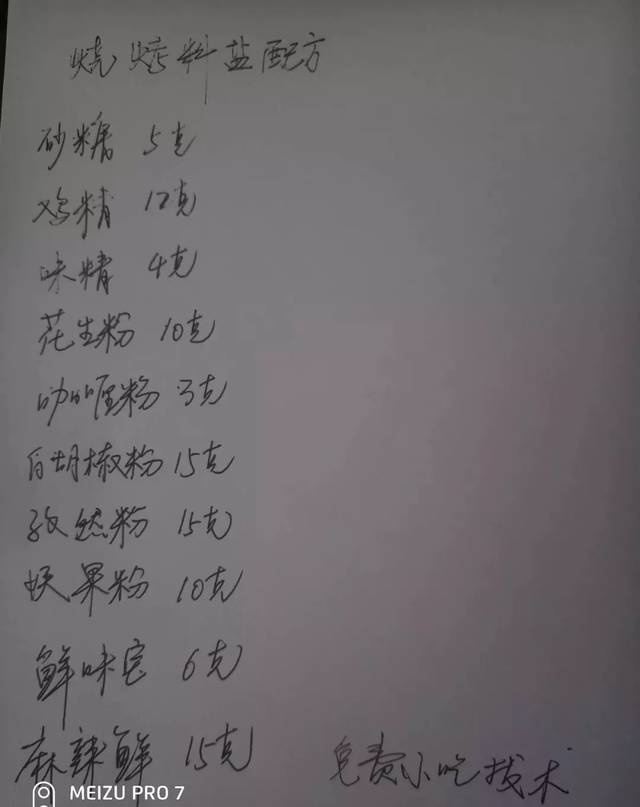 烧烤料盐配方
砂糖 5克
鸡精 12克
味精 4克
花生粉 10克
咖喱粉 3克
白胡椒粉 15克
孜然粉 15克
妖果粉 10克
鲜味宝 6克
麻辣鲜 15克
免费小吃技术
MEIZU PRO 7